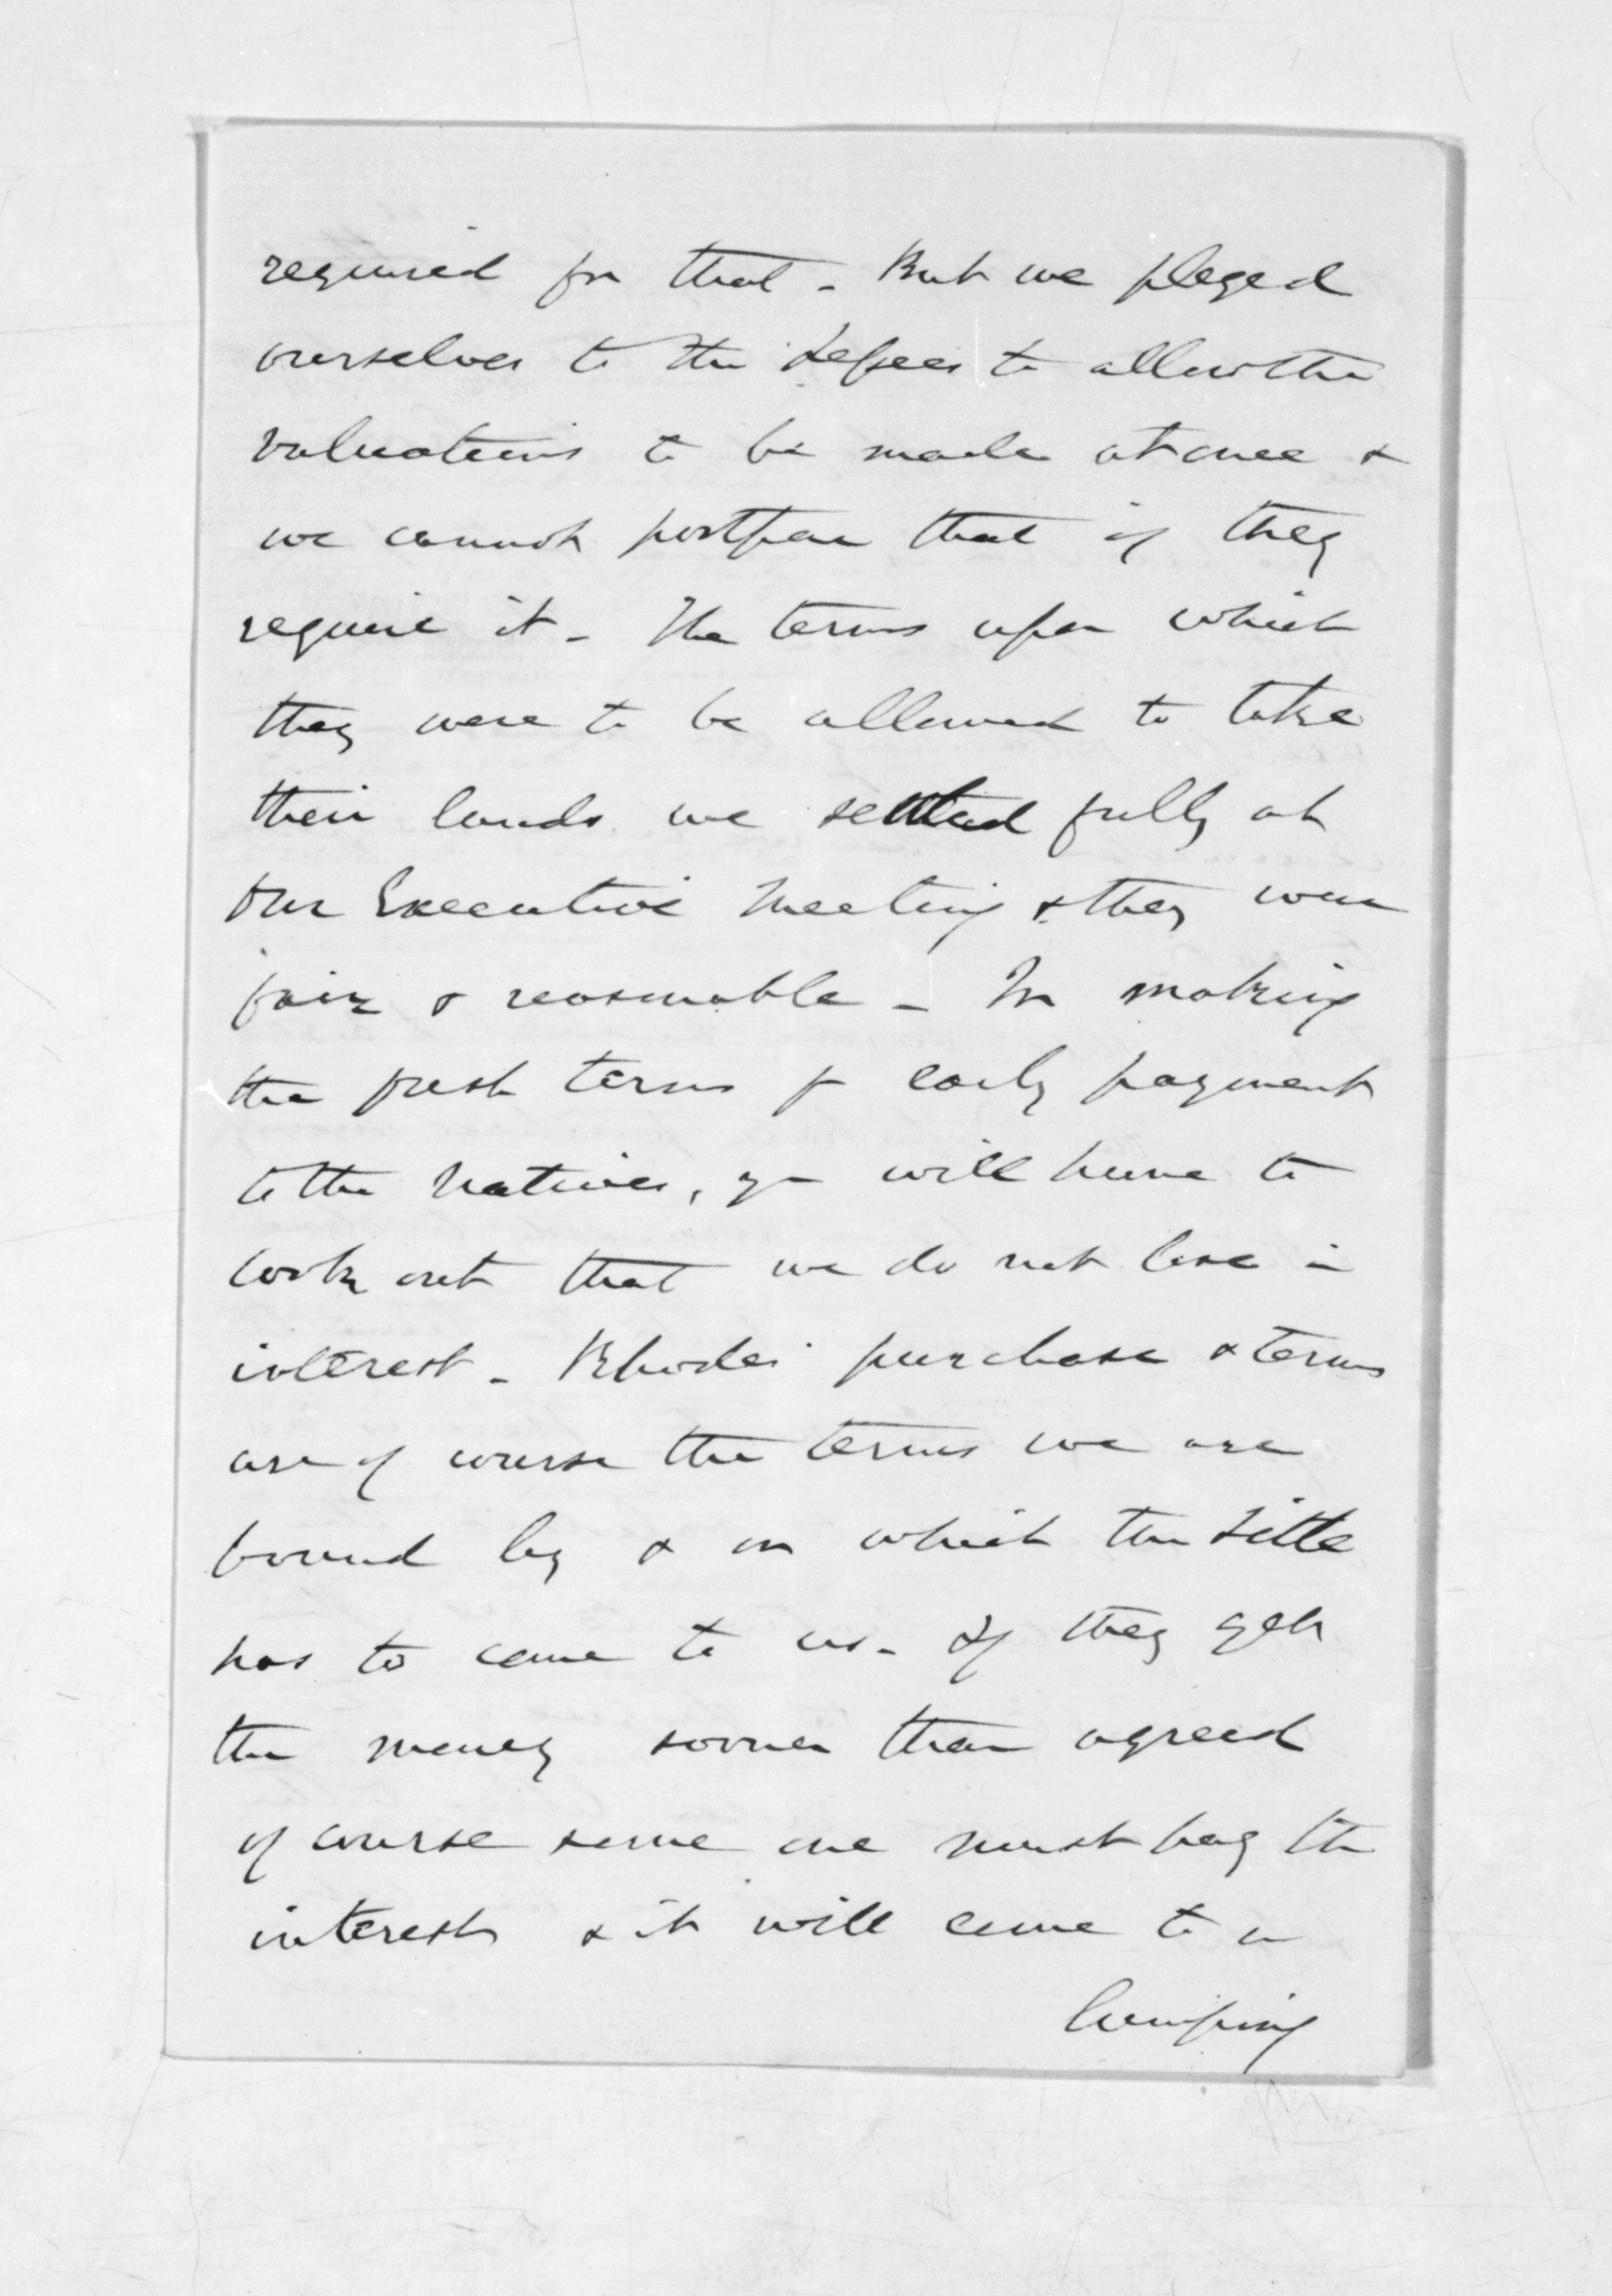 required for that - But we pleged
ourselves to the Lessees to allow the
valuations to be made at once &
we cannot postpone that if they
require it - The terms upon which
they were to be allowed to take
their lands we settled fully at
our Executive Meeting & they were
fair & reasonable - In making
the fresh terms for early payment
to the Natives, you will have to
look out that we do not lose in
interest - Rhodes' purchase & terms
are of course the terms we are
bound by & on which the title
has to come to us - If they get
the money sooner than agreed
of course some one must pay the
interest & it will come to a
lumping